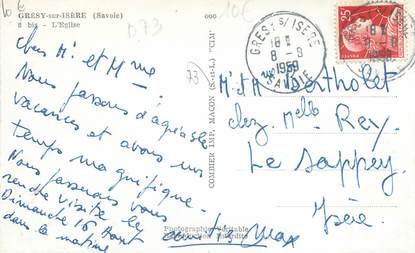 GRESY-sur-ISÈRE (Savoie)
8 bis - L'Eglise
D.73
10€
73
Chers Mr et Mme
Nous passons d'agréables
vacances et avons un
temps magnifique.
Nous passerons vous
rendre visite le
Dimanche 16 Août
dans la matinée
COMBIER IMP. MACON (S.-et-L.) "CIM"
Photographie Véritable
Reproduction Interdite
GRESY S/ ISÈRE
18 H
8 - 8
1959
SAVOIE
25
Mr et Mme Bertholet
chez Melle Rey
Le Sappey
Isère